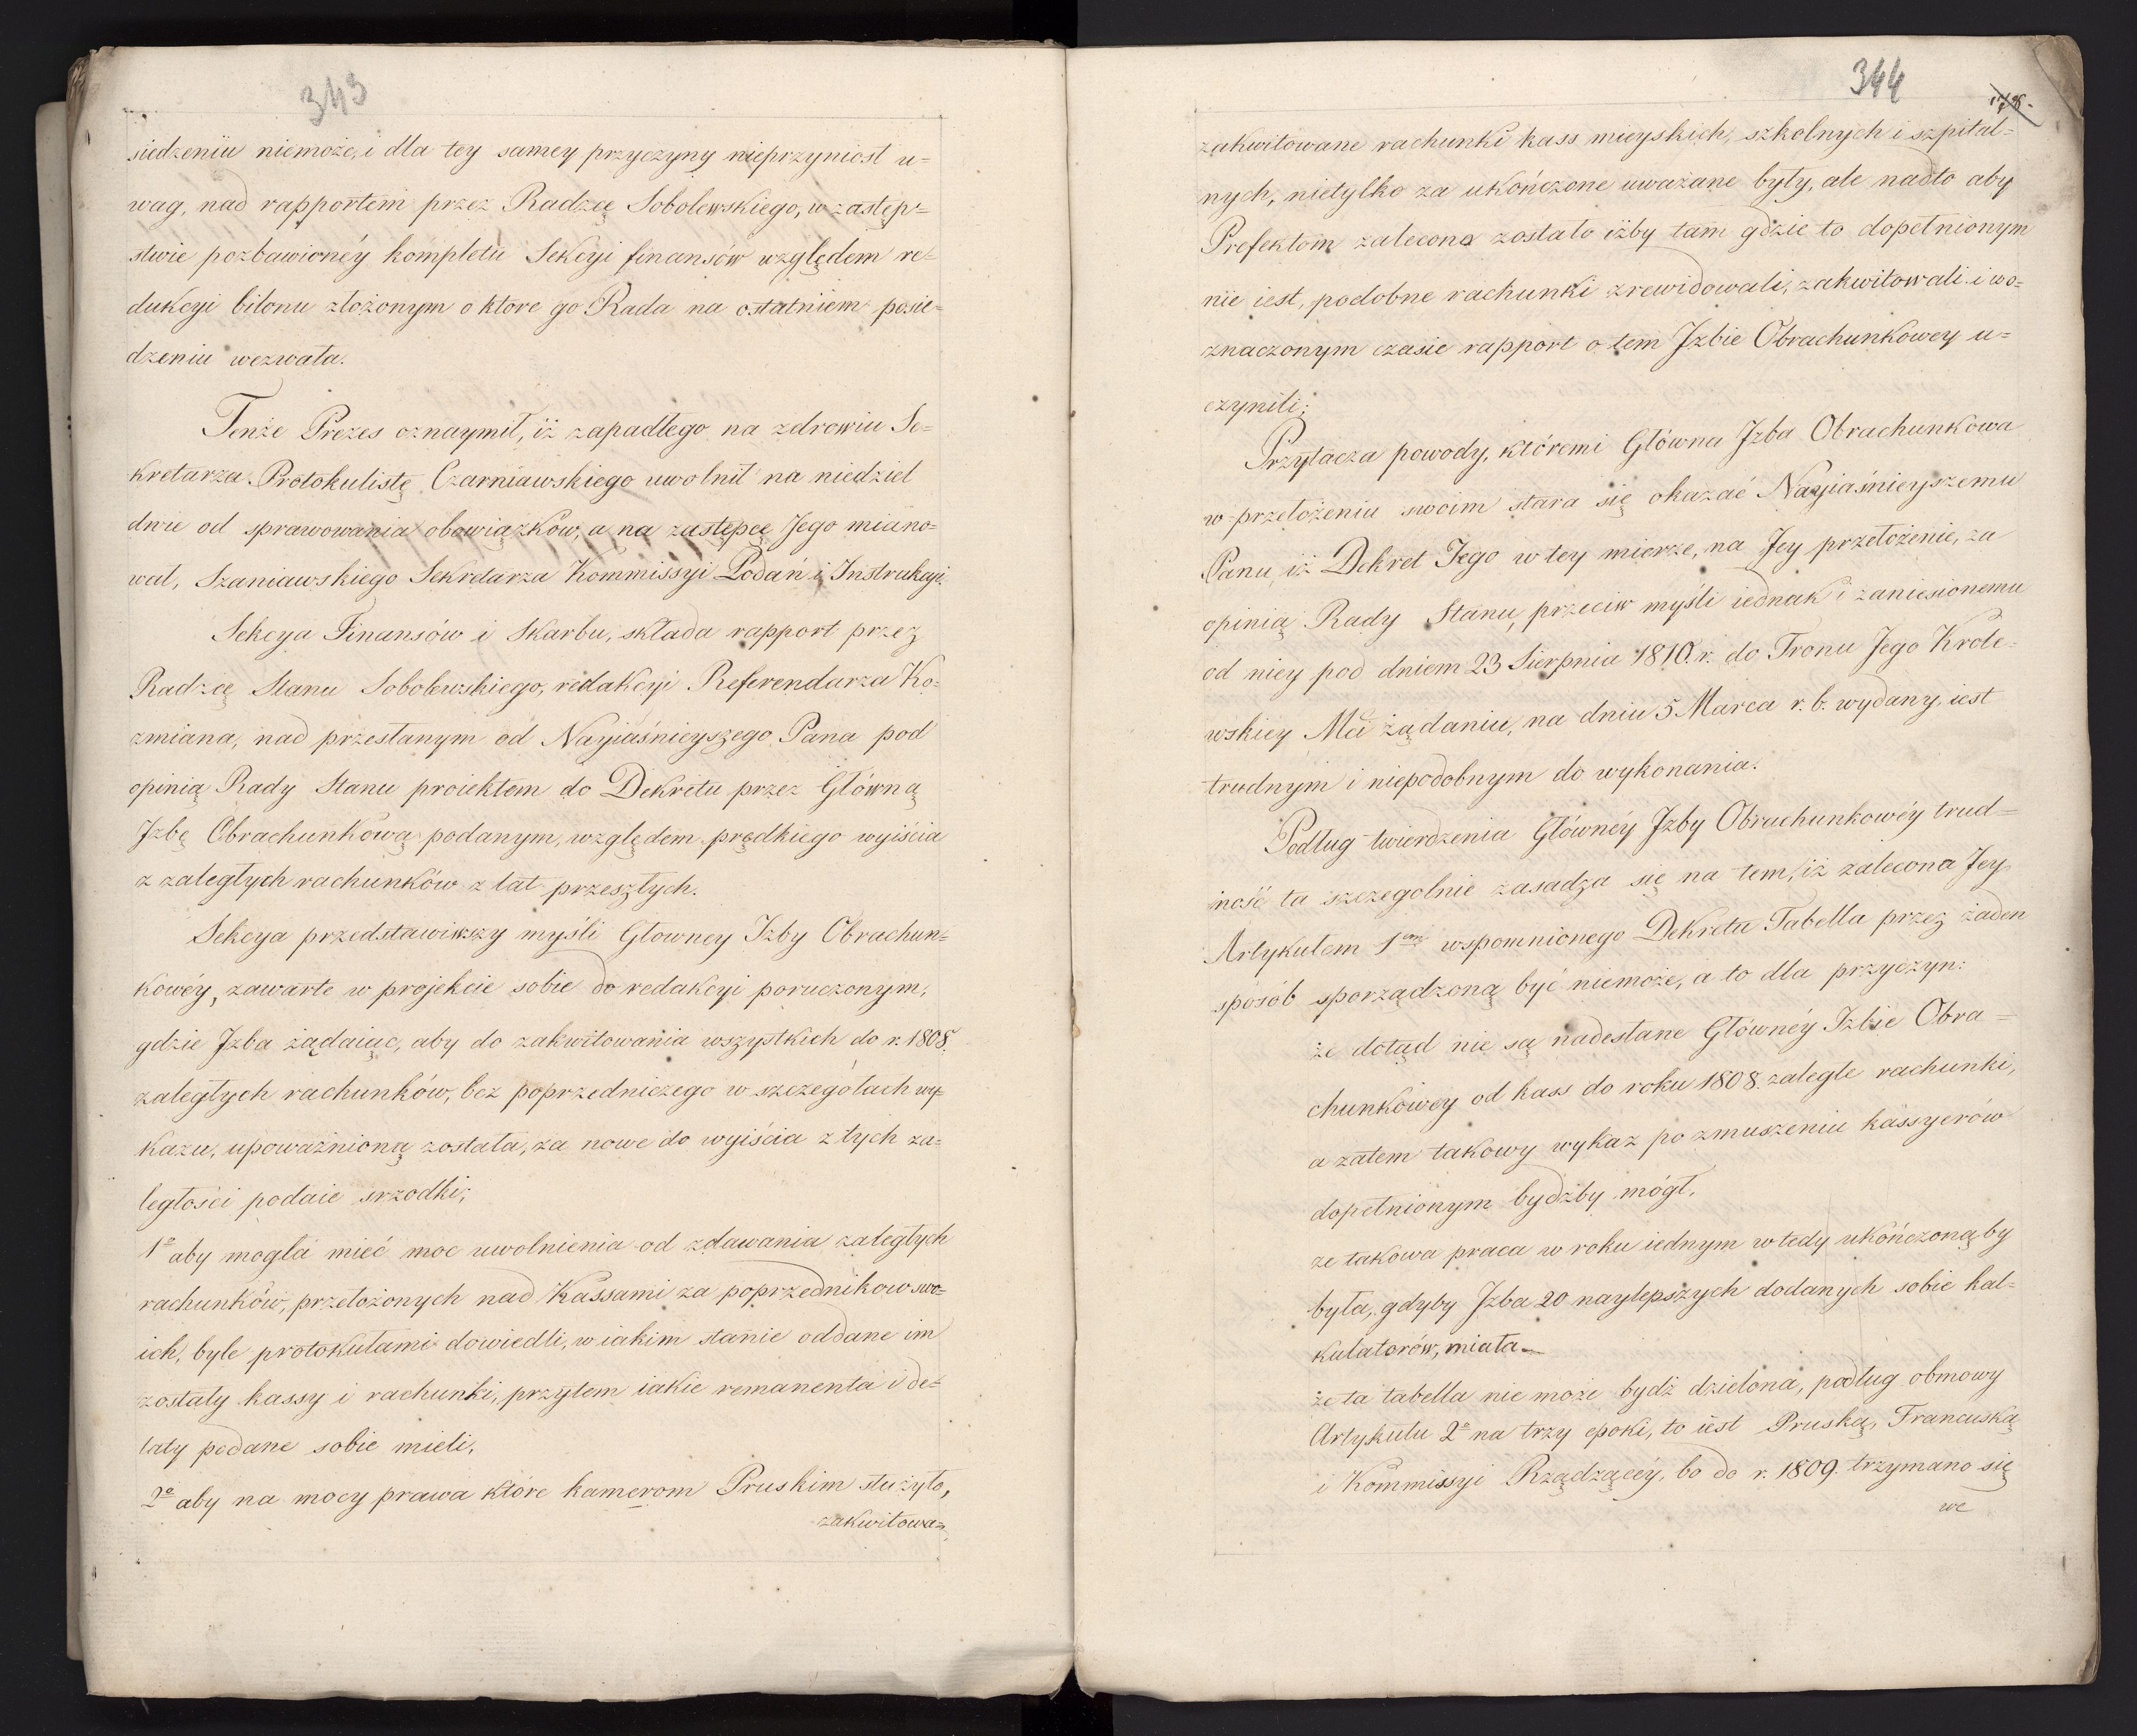 343
siedzeniu niemoże, i dla tey samey przyczyny nieprzyniosł u=
wag, nad rapportem przez Radzcę Sobolewskiego, w zastęp=
stwie pozbawionéy kompletu Sekcyi finansów względem re=
dukcyi bilonu złożonym o ktore go Rada na ostatniem posie=
dzeniu wezwała.
Tenże Prezes oznaymił, iż zapadłego na zdrowiu Se=
kretarza Protokulistę Czarniawskiego uwolnił na niedziel
dwie od sprawowania obowiązków, a na zastępcę Jego miano=
wał, Szaniawskiego Sekretarza Kommissyi Podań i Instrukcyi.
Sekcya Finansów i Skarbu, składa rapport przez
Radzcę Stanu Sobolewskiego, redakcyi Referendarza Ko=
zmiana, nad przesłanym od Nayiaśnieyszego Pana pod
opinią Rady Stanu proiektem do Dekretu przez Główną
Izbę Obrachunkową podanym, względem prędkiego wyiścia
z zaległych rachunków z lat przeszłych.
Sekcya przedstawiwszy myśli Głowney Izby Obrachun=
kowéy, zawarte w projekcie sobie do redakcyi poruczonym,
gdzie Izba żądaiąc, aby do zakwitowania wszystkich do r. 1808.
zaległych rachunków, bez poprzedniczego w szczegółach wy=
kazu, upoważnioną została, za nowe do wyiścia z tych za=
ległości podaie srzodki;
1º aby mogła mieć moc uwolnienia od zdawania zaległych
rachunków, przełożonych nad Kassami za poprzednikow swo=
ich, byle protokułami dowiedli, w iakim stanie oddane im
zostały kassy i rachunki, przytem iakie remanenta i de=
laty podane sobie mieli,
2º aby na mocy prawa które kamerom Pruskim służyło,
zakwitowa=
344
178.
zakwitowane rachunki kass mieyskich, szkolnych i szpital=
nych, nietylko za ukończone uważane były, ale nadto aby
Prefektom zalecono zostało iżby tam gdzie to dopełnionym
nie iest, podobne rachunki zrewidowali, zakwitowali i w o=
znaczonym czasie rapport o tem Izbie Obrachunkowey u=
czynili;
Przytacza powody, któremi Główna Izba Obrachunkowa
w przełożeniu swoim stara się okazać Nayiaśnieyszemu
Panu iż Dekret Jego w tey mierze, na Jey przełożenie, za
opinią Rady Stanu, przeciw myśli iednak i zaniesionemu
od niey pod dniem 23 Sierpnia 1810. r. do Tronu Jego Krole=
wskiey Mci żądaniu, na dniu 5 Marca r. b. wydany, iest
trudnym i niepodobnym do wykonania.
Podług twierdzenia Głównéy Izby Obrachunkowéy trud=
ność ta szczegolnie zasadza się na tem, iż zalecona Jey
Artykułem 1ym wspomnionego Dekretu Tabella przez żaden
sposób sporządzoną być niemoże, a to dla przyczyn:
że dotąd nie są nadesłane Głównéy Izbie Obra=
chunkowey od kass do roku 1808. zaległe rachunki,
a zatem takowy wykaz po zmuszeniu kassyerów
dopełnionym bydźby mógł,
ze takowa praca w roku iednym wtedy ukończoną by
była, gdyby Izba 20 naylepszych dodanych sobie kal=
kulatorów, miała.
że ta tabella nie może bydź dzielona, podług obmowy
Artykułu 2º na trzy epoki, to iest Pruską, Francuską
i Kommissyi Rządzącéy, bo do r. 1809. trzymano się
we